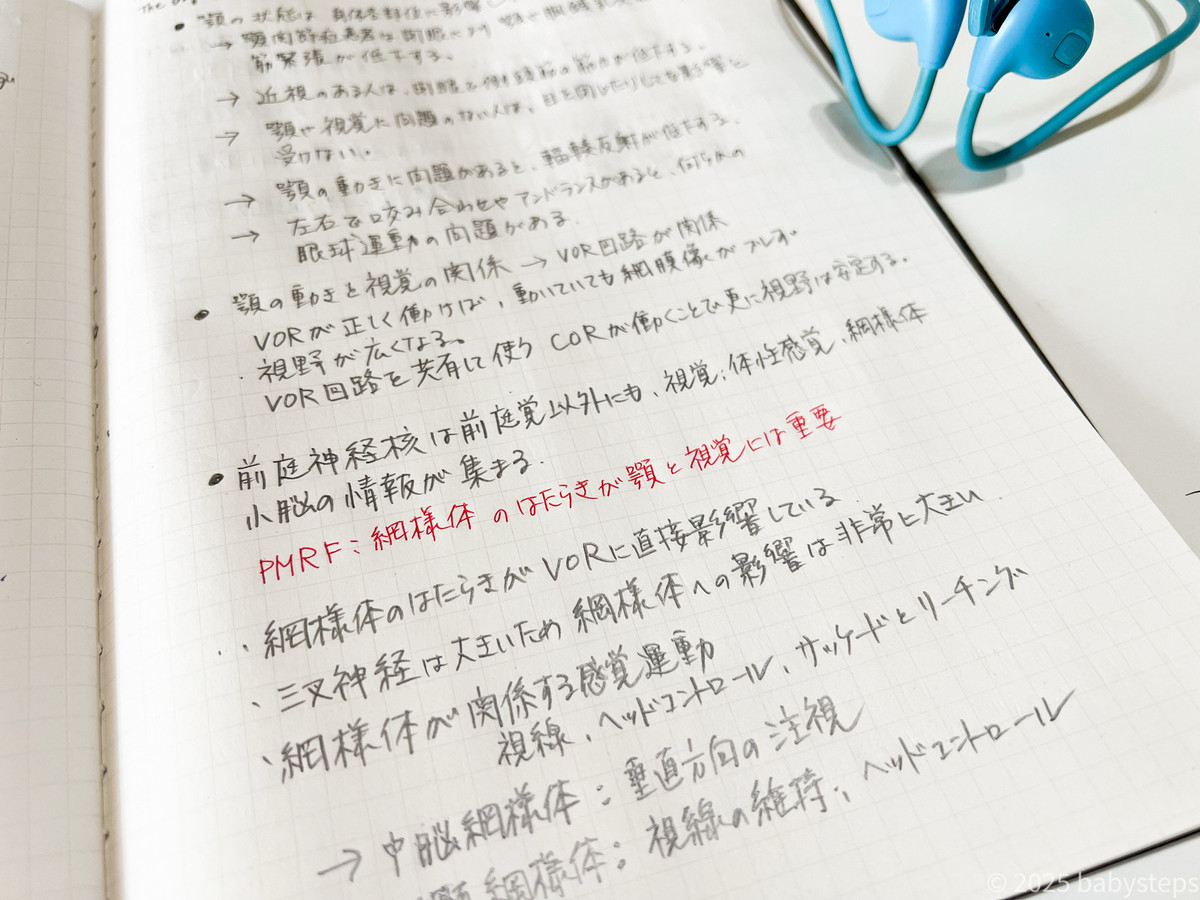 The
• 顎の状態は 身体各部位に影響
→ 顎関節症患者は閉眼により 顎や胸鎖乳突
筋緊張が低下する。
→ 近視のある人は、閉瞼と側頭筋の筋力が低下する。
→ 顎や視覚に問題のない人は、目を閉じたりしても影響を
受けない。
→ 顎の動きに問題があると、輻輳反射が低下する。
→ 左右で咬み合わせやアンドランスがあると、何らかの
眼球運動の問題がある.
• 顎の動きと視覚の関係 → VOR回路が関係
VORが正しく働けば、動いていても網膜像がブレず
視野が広くなる。
VOR回路を共有して使う CORが働くことで更に視野は安定する。
• 前庭神経核は前庭覚以外にも、視覚、体性感覚、網様体
小脳の情報が集まる.
PMRF:網様体 のはたらきが顎と視覚には重要
・・網様体のはたらきがVORに直接影響している.
・三叉神経は大きいため網様体への影響は非常に大きい
・網様体が関係する感覚運動
視線、ヘッドコントロール、サッケードとリーチング
→ 中脳網様体:垂直方向の注視
網様体:視線の維持、ヘッドコントロール
© 2025 babysteps